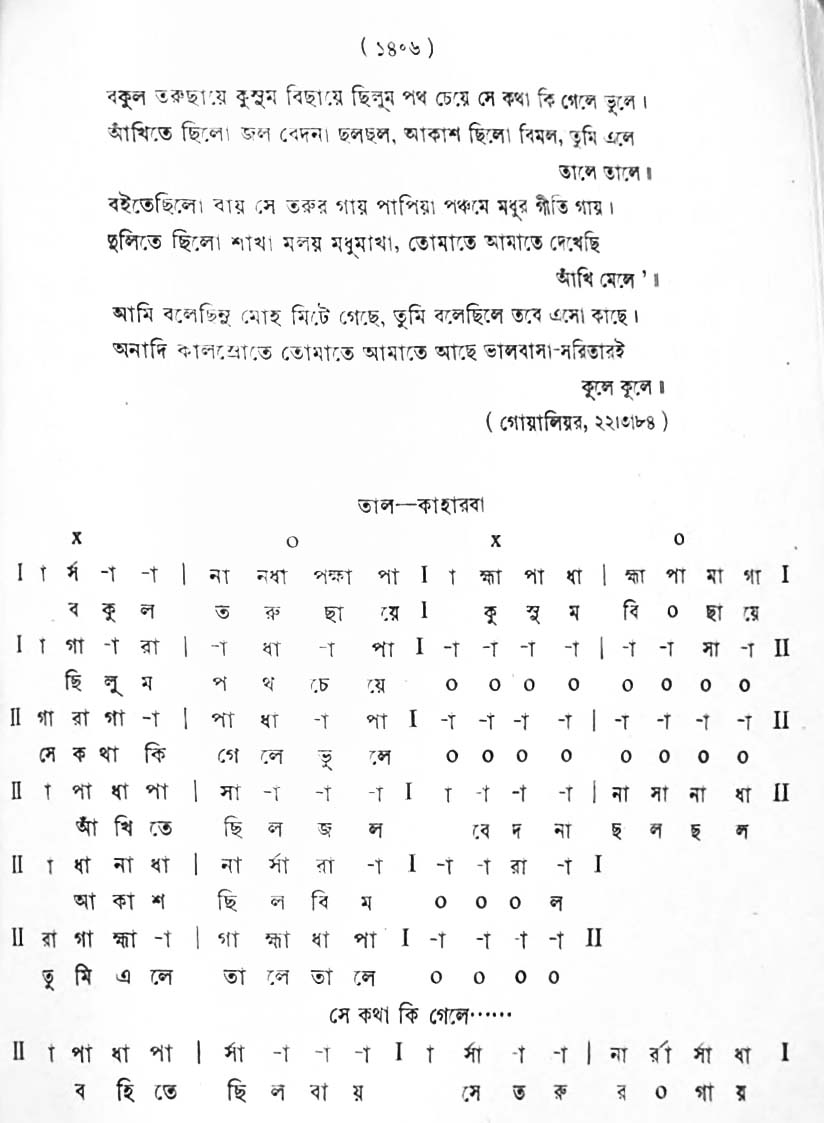 ( ১৪০৬ )
বকুল তরুছায়ে কুসুম বিছায়ে ছিলুম পথ চেয়ে সে কথা কি গেলে ভুলে।
আঁখিতে ছিলো জল বেদনা ছলছল, আকাশ ছিলো বিমল, তুমি এলে
তালে তালে॥
বইতেছিলো বায় সে তরুর গায় পাপিয়া পঞ্চমে মধুর গীতি গায়।
দুলিতে ছিলো শাখা মলয় মধুমাখা, তোমাতে আমাতে দেখেছি
আঁখি মেলে'॥
আমি বলেছিনু মোহ মিটে গেছে, তুমি বলেছিলে তবে এসো কাছে।
অনাদি কালস্রোতে তোমাতে আমাতে আছে ভালবাসা-সরিতারই
কূলে কূলে॥
( গোয়ালিয়র, ২২।৩।৮৪ )
তাল—কাহারবা
x o x o
I া র্স -া -া | না নধা পক্ষা পা I া হ্মা পা ধা | হ্মা পা মা গা I
ব কু ল ত রু ছা য়ে I কু সু ম বি o ছা য়ে
I া গা -া রা | -া ধা -া পা I -া -া -া -া | -া -া সা -া II
ছি লু ম প থ চে য়ে o o o o o o o o
II গা রা গা -া | পা ধা -া পা I -া -া -া -া | -া -া -া -া II
সে ক থা কি গে লে ভু লে o o o o o o o o
II া পা ধা পা | সা -া -া -া I া -া -া -া | না সা না ধা II
আঁ খি তে ছি ল জ ল বে দ না ছ ল ছ ল
II া ধা না ধা | না র্সা রা -া I -া -া রা -া I
আ কা শ ছি ল বি ম o o o ল
II রা গা হ্মা -া | গা হ্মা ধা পা I -া -া -া -া II
তু মি এ লে তা লে তা লে o o o o
সে কথা কি গেলে......
II া পা ধা পা | র্সা -া -া -া I া র্সা -া -া | না র্রা র্সা ধা I
ব হি তে ছি ল বা য় সে ত রু র o গা য়